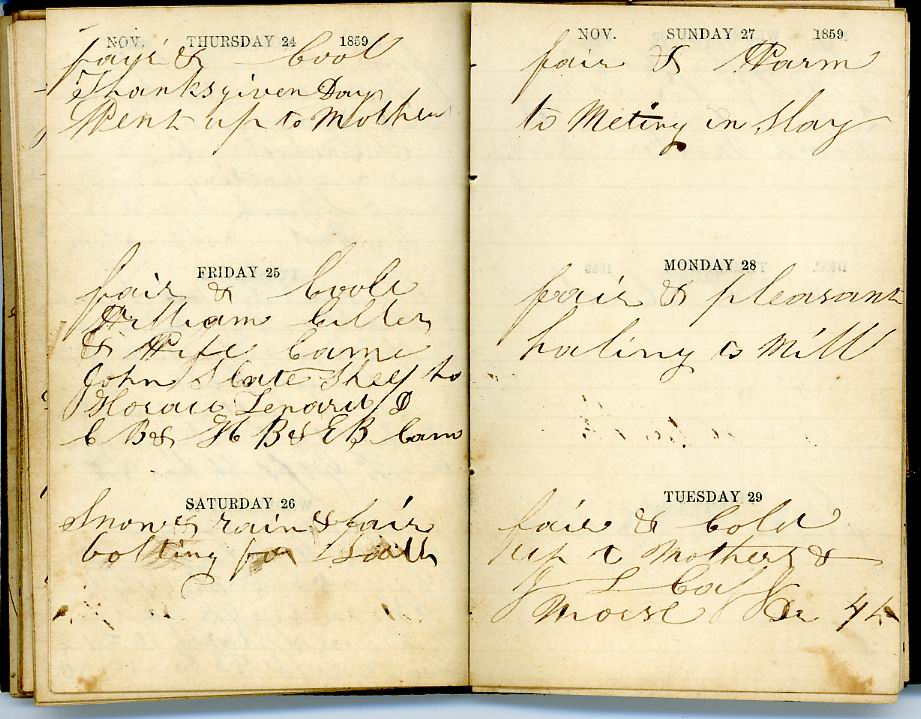 NOV. THURSDAY 24 1859
fair & Cool
Thanksgiven Day
Went up to Mothers
FRIDAY 25
fair & Coole
William
& Wife Came
John Slate Sheep to
Horace Lenard D
C B & H B & E B Came
SATURDAY 26
Snow & rain & fair
bolting for
NOV. SUNDAY 27 1859
fair & Warm
to Meting in Slay
MONDAY 28
fair & pleasant
haling to Mill
TUESDAY 29
fair & Cold
up to Mothers &
J L
Morse